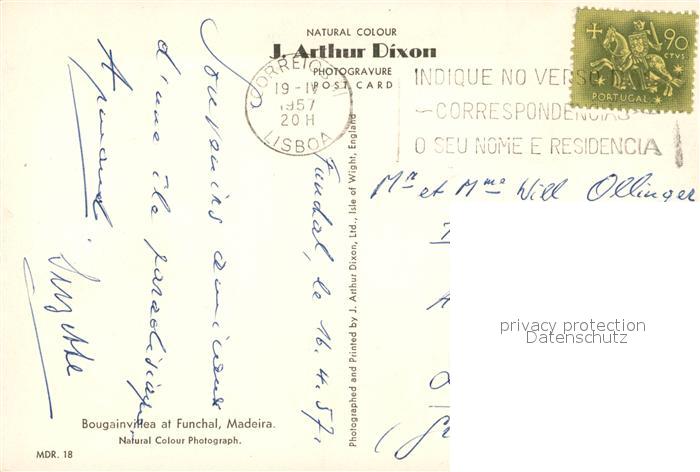 NATURAL COLOUR
J. Arthur Dixon
PHOTOGRAVURE
POST CARD
CORREIOS
19 - IV
1957
20 H
LISBOA
INDIQUE NO VERSO DAS
CORRESPONDENCIAS
O SEU NOME E RESIDENCIA
90
CTVS
PORTUGAL
Funchal, le 16.4.57.
Souvenirs amicaux
d'une île paradisiaque.
Armand.
Suzette
Mr et Mme Will Ollinger
privacy protection
Datenschutz
Photographed and Printed by J. Arthur Dixon, Ltd., Isle of Wight, England
Bougainvillea at Funchal, Madeira.
Natural Colour Photograph.
MDR. 18